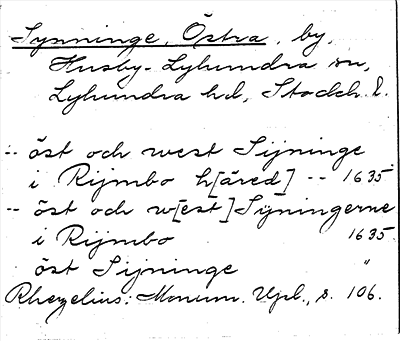 Synninge, Östra, by,
Husby-Lyhundra sn,
Lyhundra hd, Stockh. l.
-- öst och west Sijninge
i Rijmbo h[äred] -- 1635.
-- öst och w[est] Sÿningerne
i Rijmbo 1635.
öst Sijninge "
Rhezelius: Monum. Upl., s. 106.